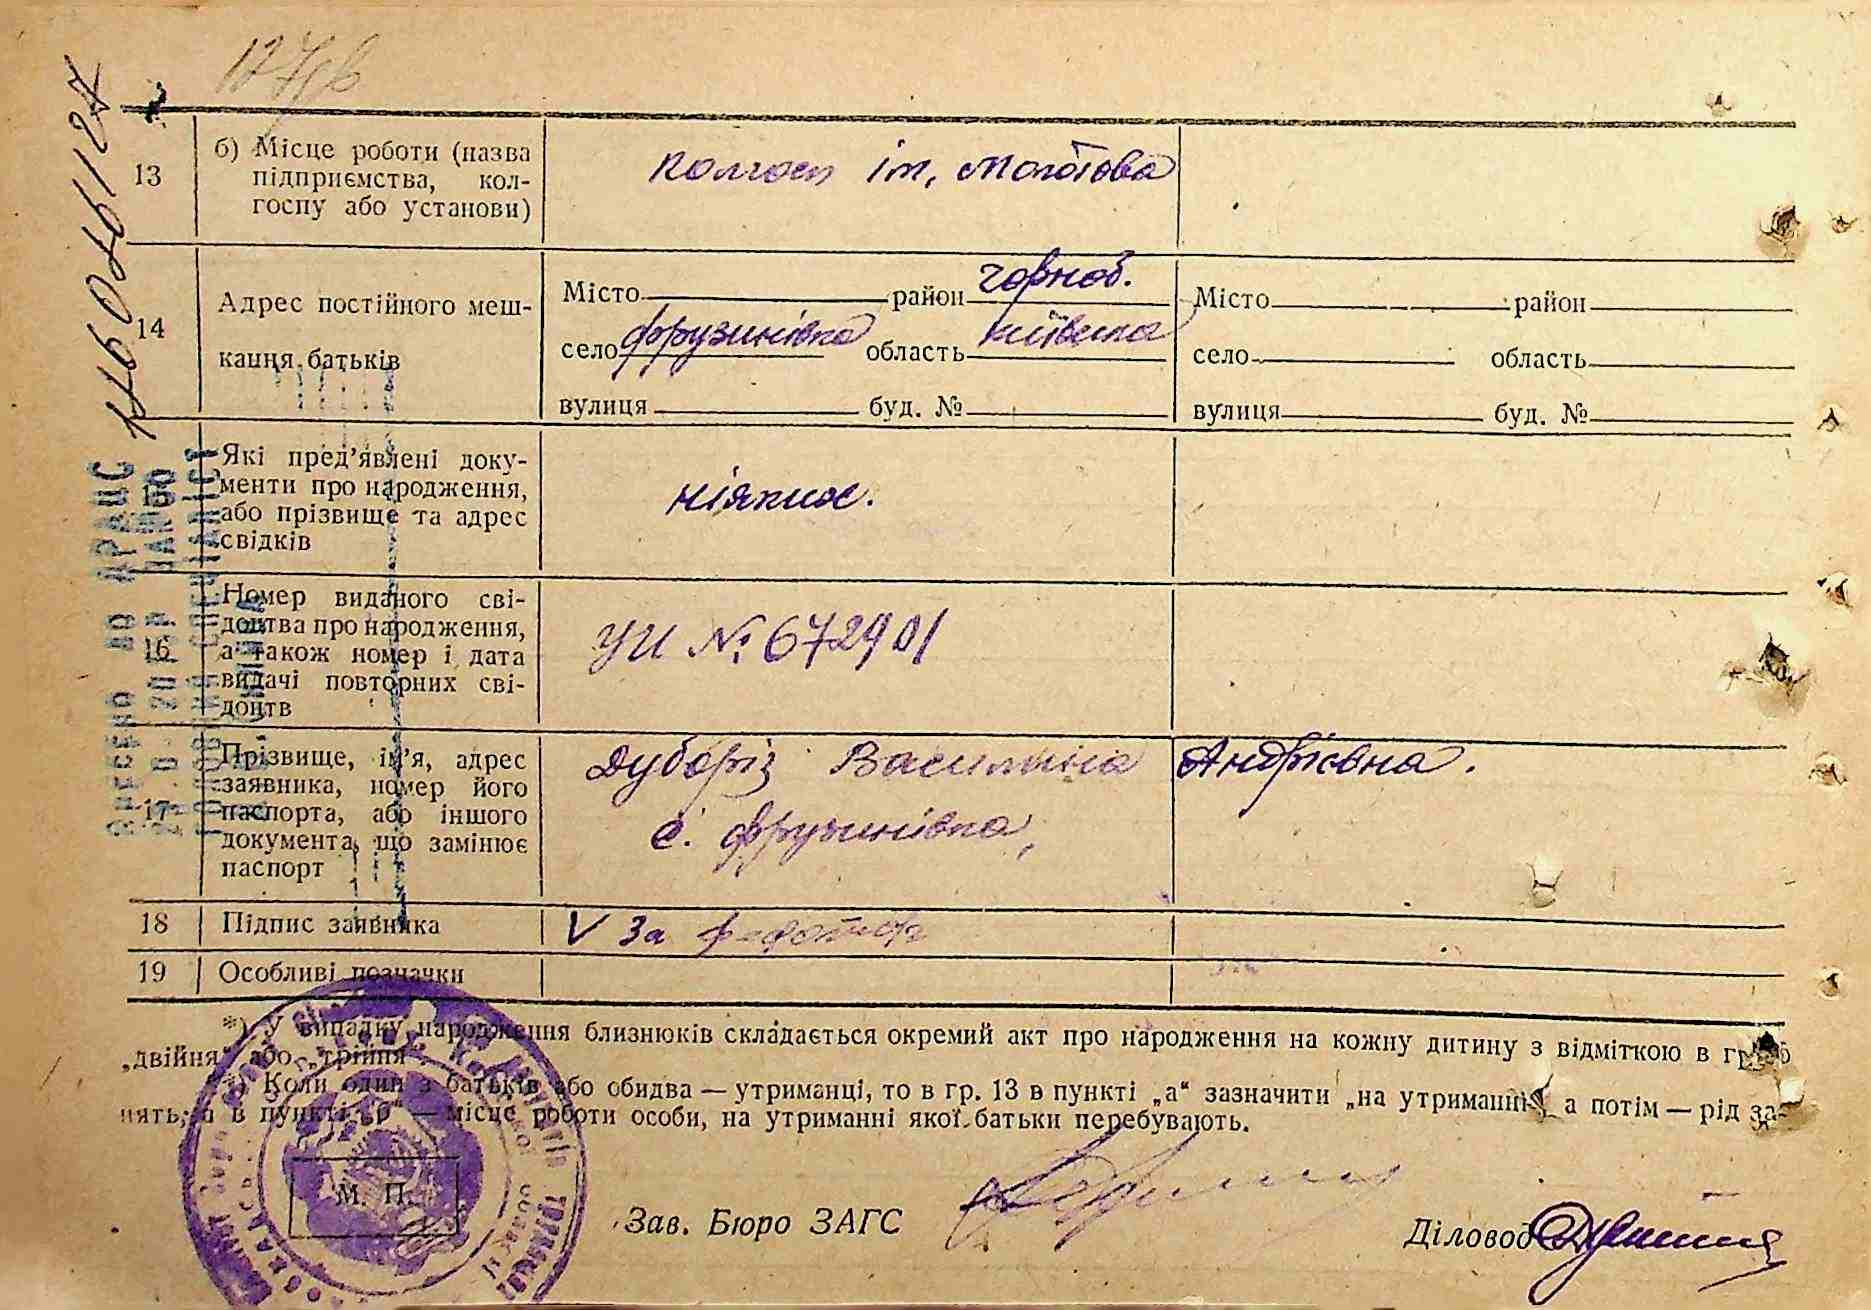 13 б) Місце роботи (назва
підприємства, кол-
госпу або установи)
колгосп ім. Молотова
14 Адрес постійного меш-
кання батьків
Місто район чорноб.
село Фрузинівка область київська
вулиця буд. №
Місто район
село область
вулиця буд. №
15 Які пред'явлені доку-
менти про народження,
або прізвище та адрес
свідків
ніяких.
16 Номер виданого сві-
доцтва про народження,
а також номер і дата
видачі повторних сві-
доцтв
УИ № 672901
17 Прізвище, ім'я, адрес
заявника, номер його
паспорта, або іншого
документа, що замінює
паспорт
Дуборіз Василина Андріевна.
с. Фрузинівка,
18 Підпис заявника
V За
19 Особливі позначки
*) У випадку народження близнюків складається окремий акт про народження на кожну дитину з відміткою в гр. 6
„двійня" або „трійня".
Коли один з батьків або обидва — утриманці, то в гр. 13 в пункті „а" зазначити „на утриманні", а потім — рід за-
нять, а в пункті „б" — місце роботи особи, на утриманні якої батьки перебувають.
М. П.
Зав. Бюро ЗАГС
Діловод